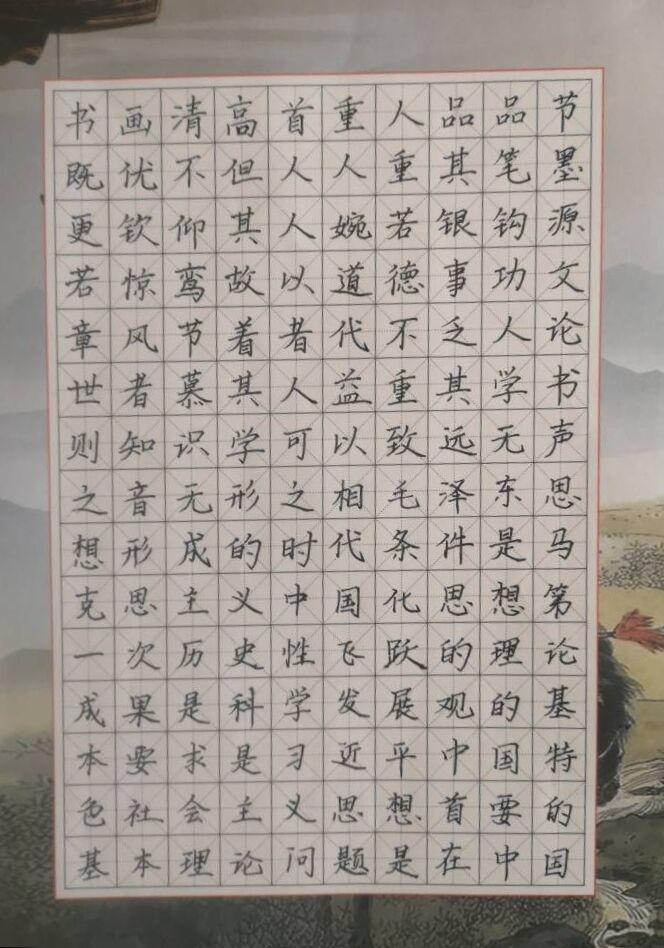 书画清高首重人品品节
既优不但人人重其笔墨
更钦仰其人婉若银钩源
若惊鸾故以道德事功文
章风节着者代不乏人论
世者慕其人益重其学书
则知识学可以致远无声
之音无形之相毛泽东思
想形成的时代条件是马
克思主义中国化思想第
一次历史性飞跃的理论
成果是科学发展观的基
本要求是习近平中国特
色社会主义思想首要的
基本理论问题是在中国